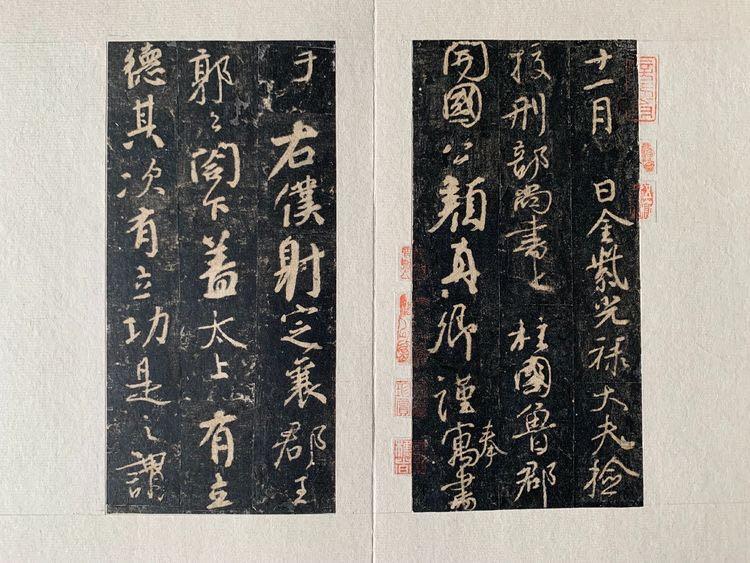 十一月　日金紫光禄大夫檢
挍刑部尚書上　柱國魯郡
開國公顔真卿謹奉寓書
于　右僕射定襄郡王
郭公閤下蓋太上有立
德其次有立功是之謂